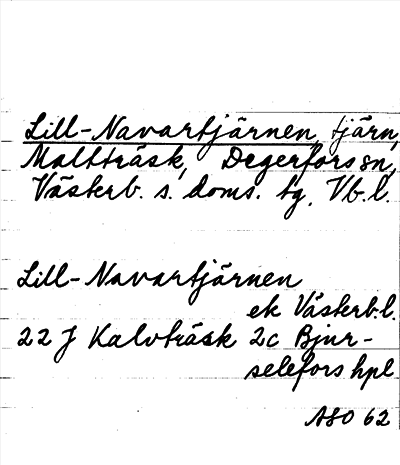 Lill-Navartjärnen, tjärn,
Maltträsk, Degerfors sn,
Västerb. s. doms. tg, Vb. l.
Lill-Navartjärnen
ek Västerb.l.
22 J Kalvträsk 2c Bjur-
selefors hpl
ASO 62